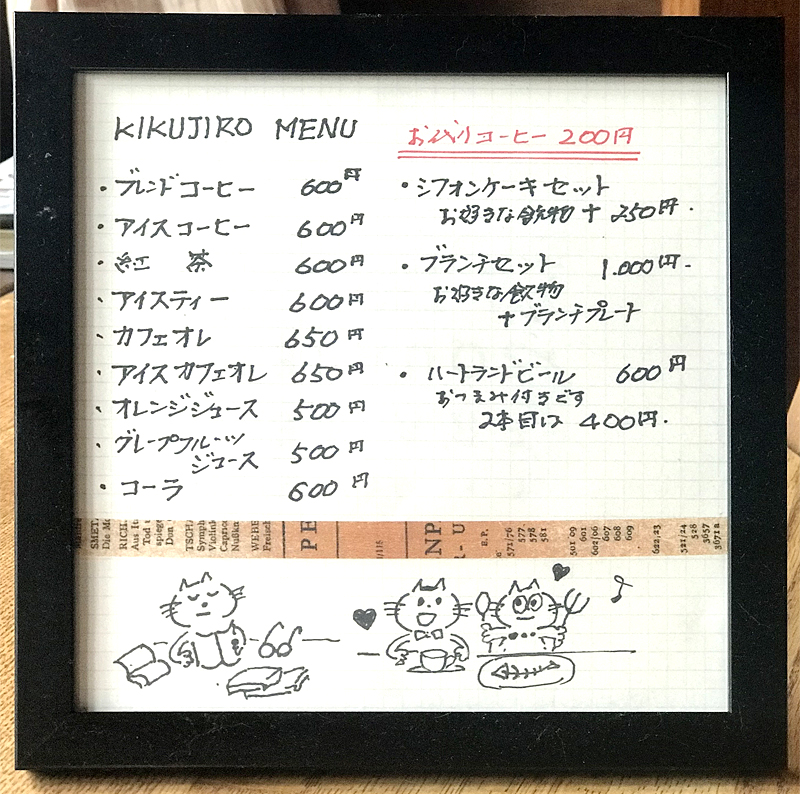 KIKUJIRO MENU
・ブレンドコーヒー 600円
・アイスコーヒー 600円
・紅 茶 600円
・アイスティー 600円
・カフェオレ 650円
・アイスカフェオレ 650円
・オレンジジュース 500円
・グレープフルーツ
ジュース 500円
・コーラ 600円
お代りコーヒー 200円
・シフォンケーキセット
お好きな飲物 + 250円.
・ブランチセット 1.000円-
お好きな飲物
+ブランチプレート
・ハートランドビール 600円
おつまみ付きです
2本目は 400円.
SMET.
Die Mo
RICH.
Aus It
Tod u
spiege
Don
TSCHA
Symph
Violink
Capric
Nußkn
WEBE
Freisch
PE
/115
NP
R- U
E. P.
571/76
577.
578
581
501 09
601
602/06
607
608
609
622,23
521/24
526
528
3657
3671 a